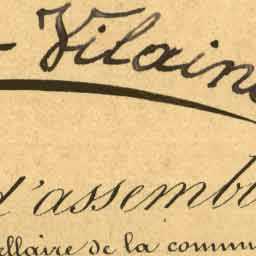 - Vilaine
d'assemb
ellaire de la commu